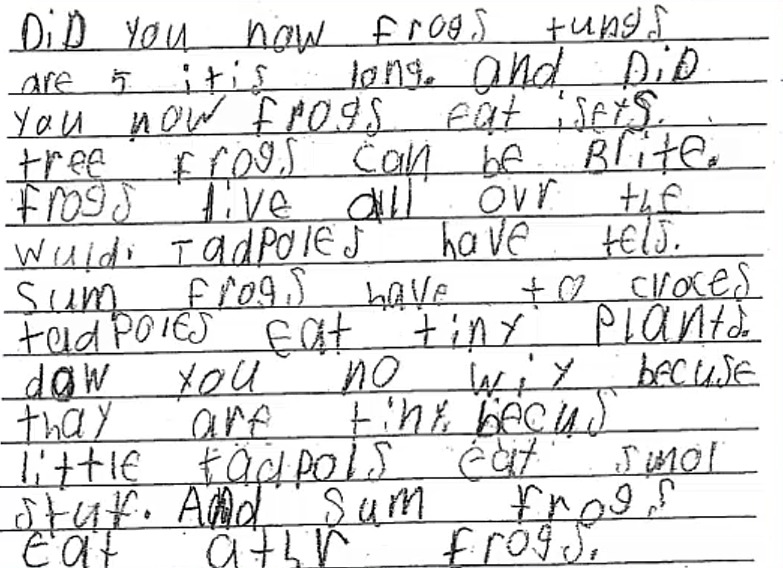 DiD you now frogs tungs
are 5 itis long. and DiD
you now frogs eat isexs.
tree frogs can be Brite.
frogs live all ovr the
wuld. Tadpoles have tels.
Sum frogs have to croces
tadpoles eat tiny Plants.
dow you no wiy becuse
thay are tiny. becus
little tadpols eat smol
stuf. And sum frogs
eat athr frogs.